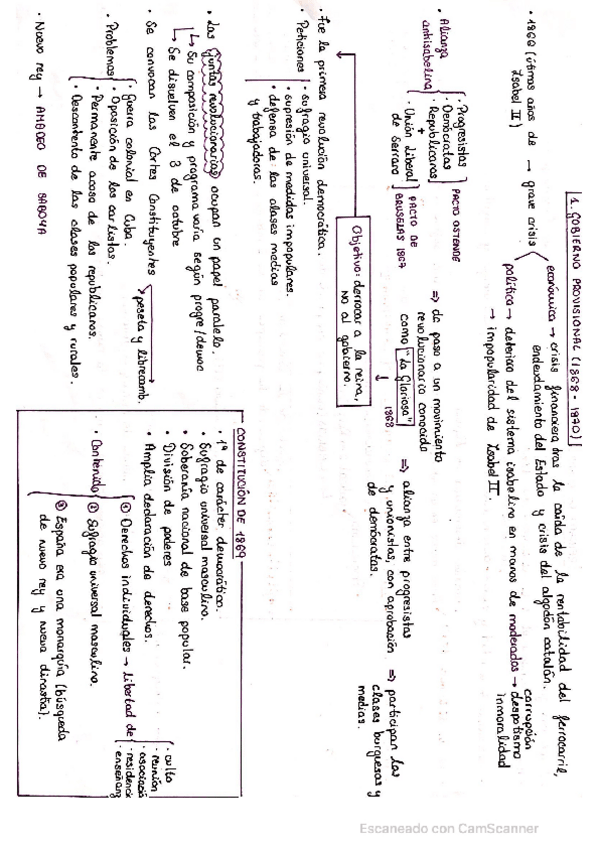 1. GOBIERNO PROVISIONAL (1868-1870)
· 1860 (últimos años de Isabel II) → grave crisis
económica → crisis financiera tras la caída de la rentabilidad del ferrocarril,
endeudamiento del Estado y crisis del algodón catalán.
política → deterioro del sistema isabelino en manos de moderados → corrupción
despotismo
inmoralidad
→ impopularidad de Isabel II.
· Alianza
antiisabelina
· Progresistas
· Demócratas
· Republicanos
PACTO OSTENDE
+
· Unión Liberal
de Serrano
PACTO DE
BRUSELAS 1867
⇒ da paso a un movimiento
revolucionario conocido
como "La Gloriosa"
↓
1868
⇒ alianza entre progresistas
y unionistas, con aprobación
de demócratas.
⇒ participan las
clases burguesas y
medias.
Objetivo: derrocar a la reina,
NO al gobierno.
· Fue la primera revolución democrática.
· Peticiones
· Sufragio universal.
· supresión de medidas impopulares.
· defensa de las clases medias
y trabajadoras.
· Las juntas revolucionarias ocupan un papel paralelo.
↳ Su composición y programa varía según progre/democ
↳ Se disuelven el 3 de octubre
· Se convocan las Cortes Constituyentes
→ peseta y librecamb.
· Problemas
· Guerra colonial en Cuba
· Oposición de los carlistas.
· Permanente acoso de los republicanos.
· Descontento de las clases populares y rurales.
· Nuevo rey → AMADEO DE SABOYA
CONSTITUCIÓN DE 1869
· 1ª de carácter democrático.
· Sufragio universal masculino.
· Soberanía nacional de base popular.
· División de poderes
· Amplia declaración de derechos.
· Contenido
① Derechos individuales → libertad de
· culto
· reunión
· asociació
· residenci
· enseñanz
② Sufragio universal masculino.
③ España era una monarquía (búsqueda
de nuevo rey y nueva dinastía).
Escaneado con CamScanner